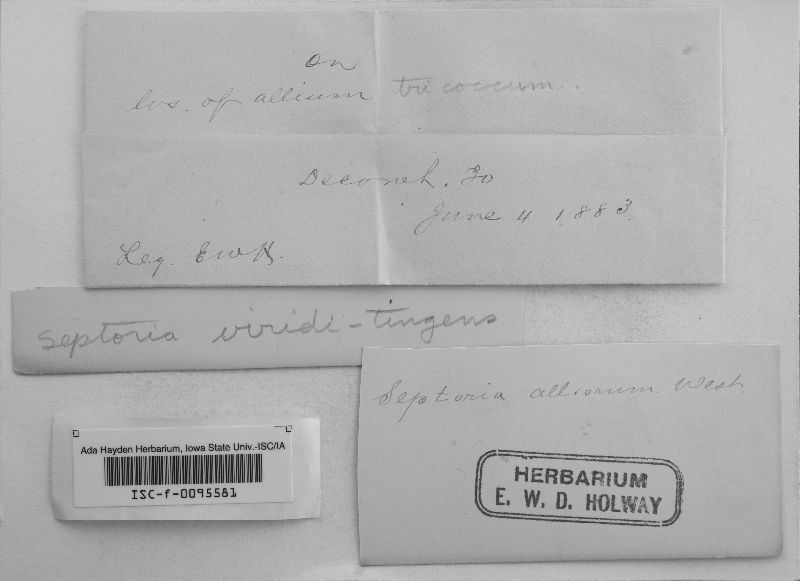 on
lvs. of allium tricoccum.
Decorah. Io
June 4 1883.
Leg. EWH.
Septoria viridi-tingens
Septoria alliorum West.
Ada Hayden Herbarium, Iowa State Univ.-ISC/IA
ISC-f-0095581
HERBARIUM
E. W. D. HOLWAY